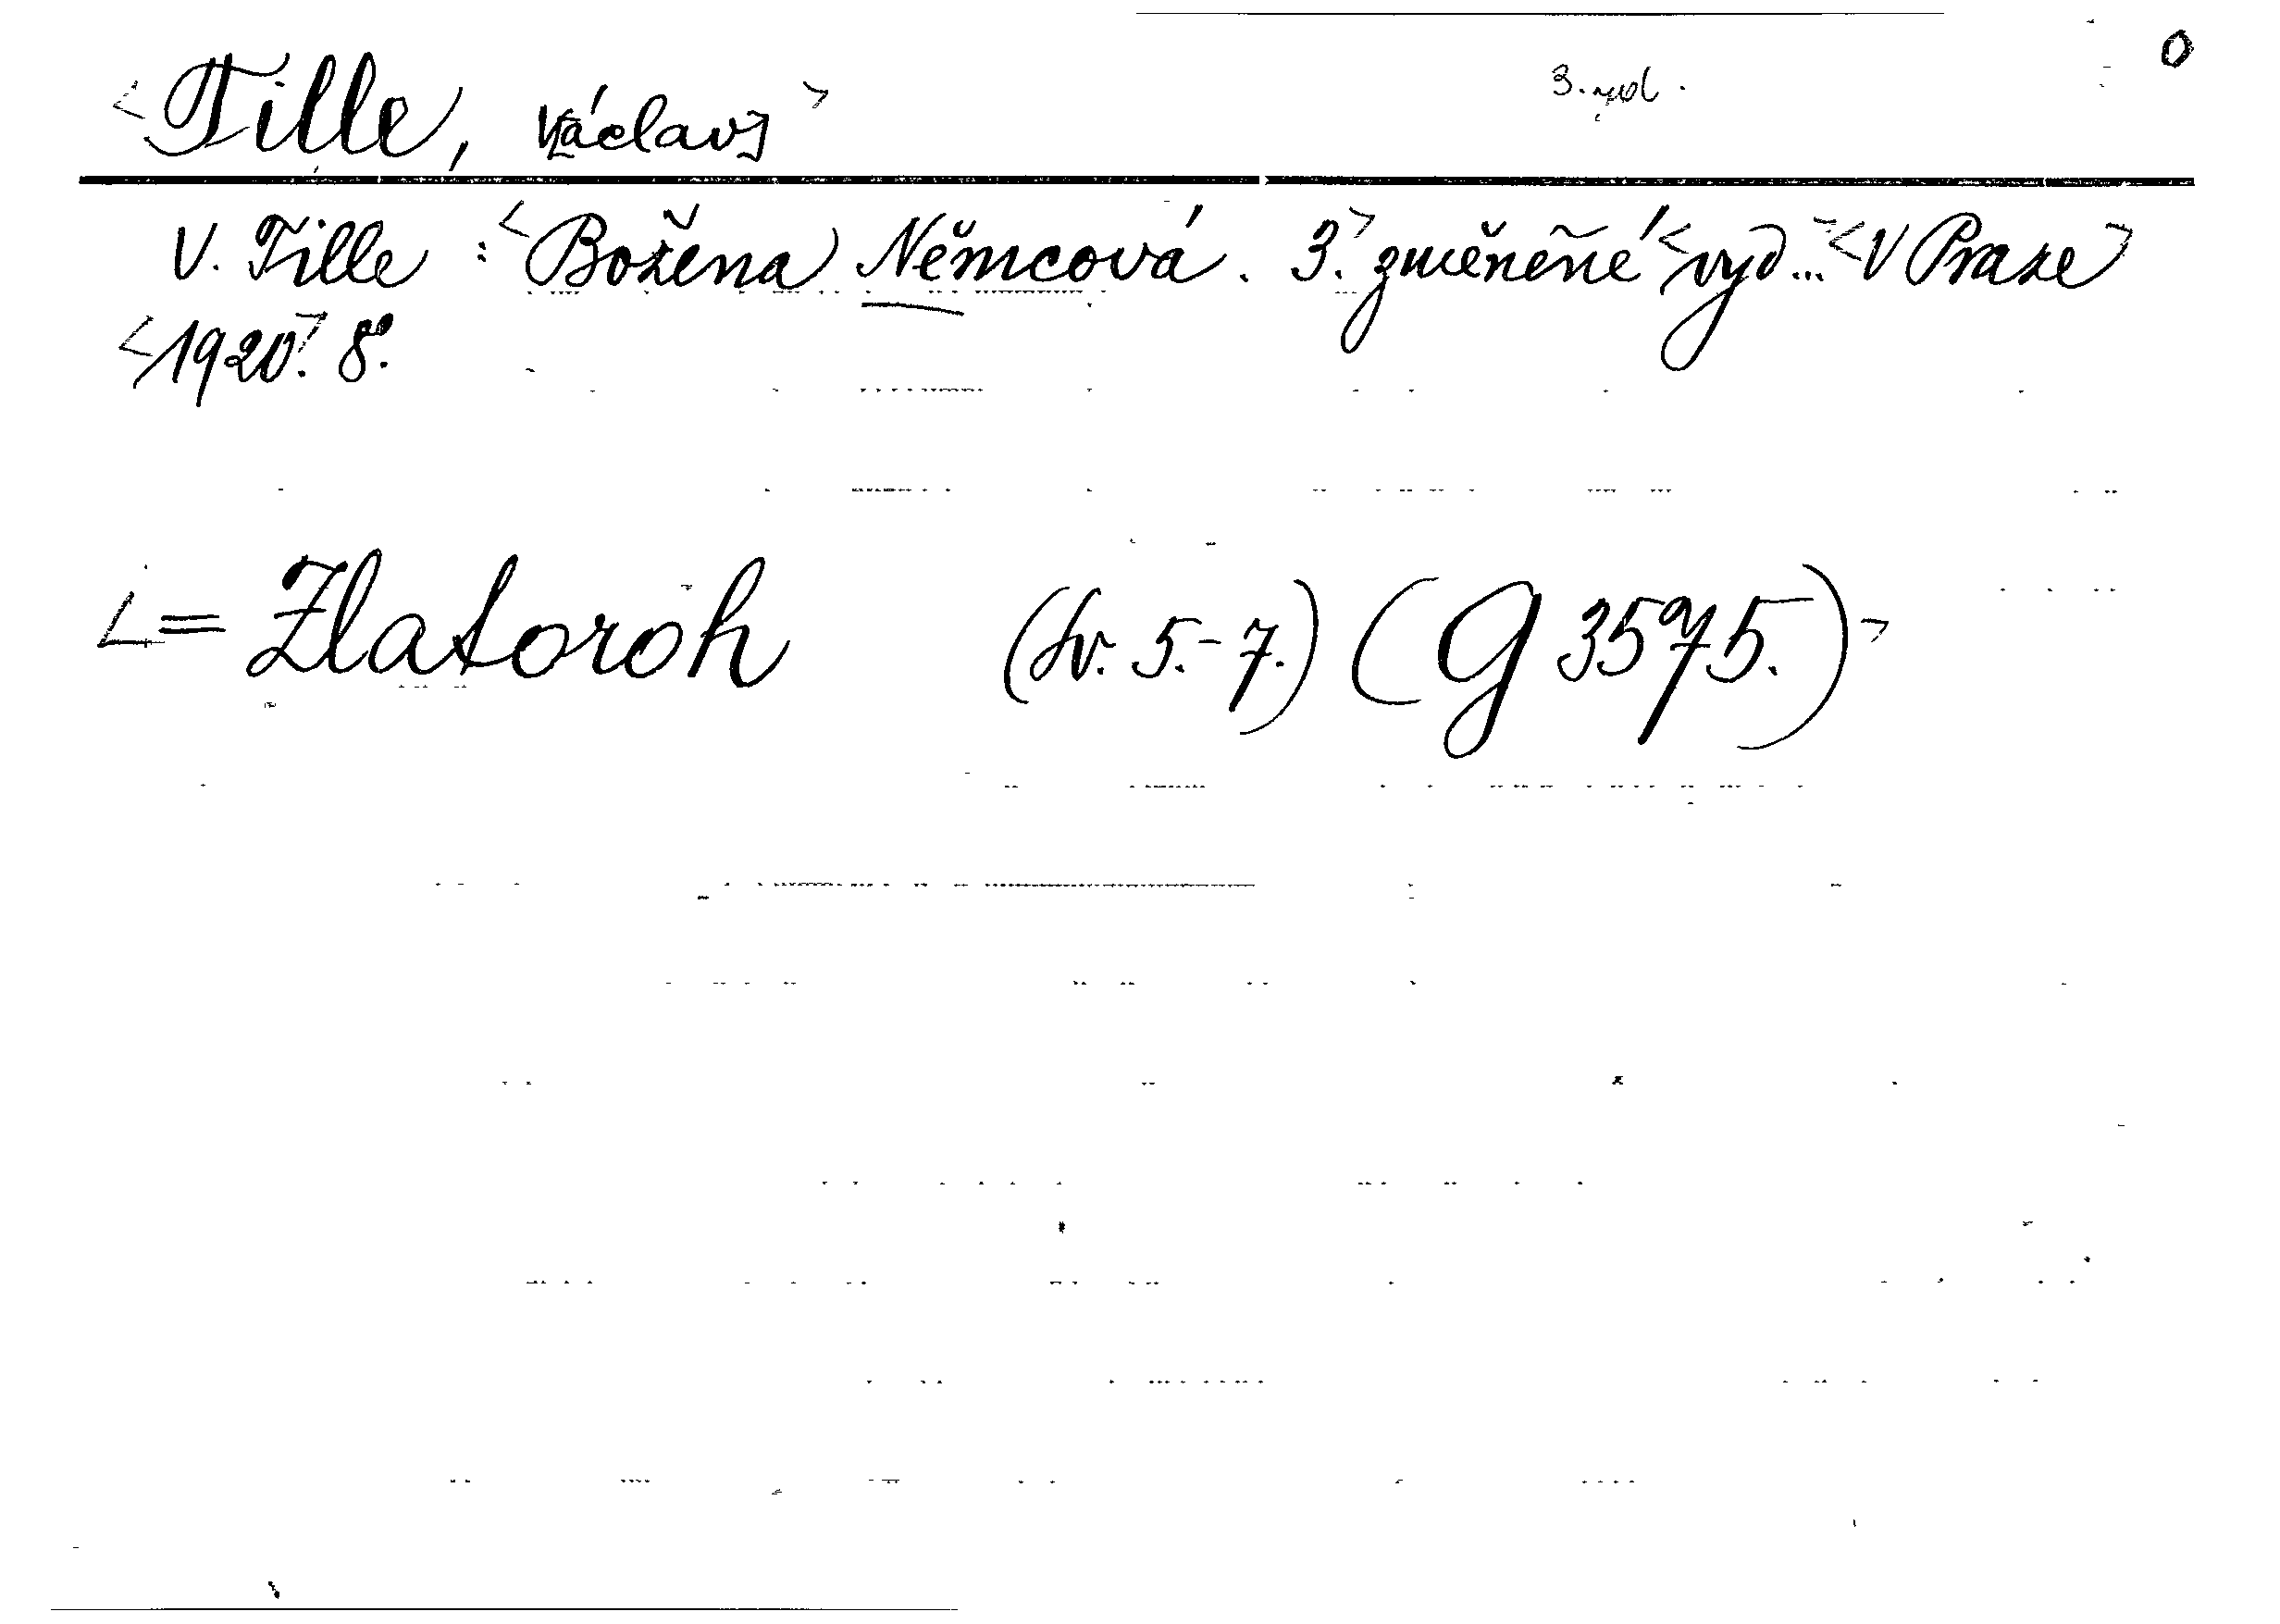 3. vyd. 0
<Tille, V[áclav]>
V. Tille : <Božena Němcová. 3.> změněné <vyd...> <V Praze>
<1920>. 8°.
<= Zlatoroh (sv. 5.-7.) (G 3575.)>